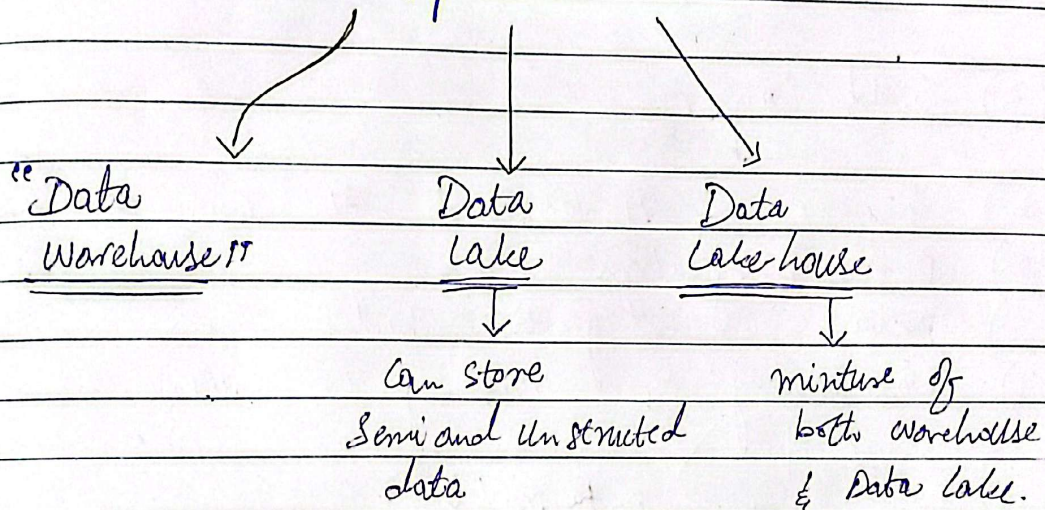 "Data
Warehouse"
Data
Lake
Data
Lakehouse
Can store
Semi and Unstructed
data
mixture of
both warehouse
& Data Lake.